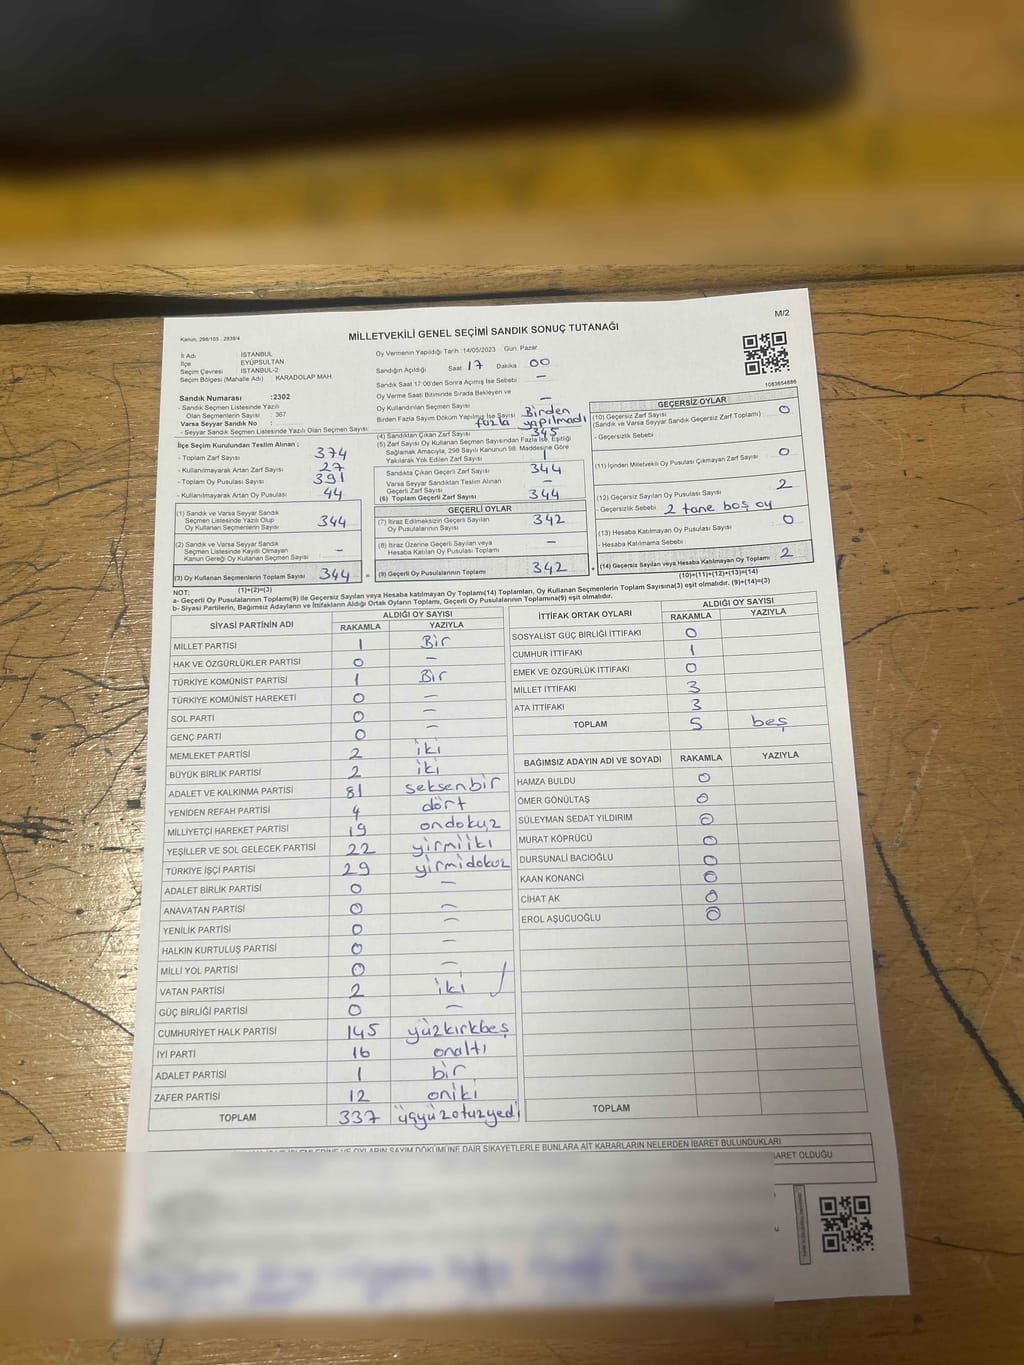 M/2
Kanun: 298/105, 2839/4
MİLLETVEKİLİ GENEL SEÇİMİ SANDIK SONUÇ TUTANAĞI
İl Adı : İSTANBUL
İlçe : EYÜPSULTAN
Seçim Çevresi : İSTANBUL-2
Seçim Bölgesi (Mahalle Adı) : KARADOLAP MAH.
Sandık Numarası :2302
- Sandık Seçmen Listesinde Yazılı
Olan Seçmenlerin Sayısı : 367
Varsa Seyyar Sandık No :
- Seyyar Sandık Seçmen Listesinde Yazılı Olan Seçmen Sayısı:
Oy Vermenin Yapıldığı Tarih :14/05/2023 Gün: Pazar
Sandığın Açıldığı Saat 17 Dakika 00
Sandık Saat 17:00'den Sonra Açılmış İse Sebebi : –
Oy Verme Saati Bitiminde Sırada Bekleyen ve
Oy Kullandırılan Seçmen Sayısı –
Birden Fazla Sayım Döküm Yapılmış İse Sayısı Birden fazla yapılmadı
1083654886
İlçe Seçim Kurulundan Teslim Alınan ;
- Toplam Zarf Sayısı : 374
- Kullanılmayarak Artan Zarf Sayısı : 27
- Toplam Oy Pusulası Sayısı : 391
- Kullanılmayarak Artan Oy Pusulası : 44
(1) Sandık ve Varsa Seyyar Sandık
Seçmen Listesinde Yazılı Olup
Oy Kullanan Seçmenlerin Sayısı 344
(2) Sandık ve Varsa Seyyar Sandık
Seçmen Listesinde Kayıtlı Olmayan
Kanun Gereği Oy Kullanan Seçmen Sayısı –
(3) Oy Kullanan Seçmenlerin Toplam Sayısı 344
(1)+(2)=(3)
(4) Sandıktan Çıkan Zarf Sayısı 345
(5) Zarf Sayısı Oy Kullanan Seçmen Sayısından Fazla İse, Eşitliği
Sağlamak Amacıyla, 298 Sayılı Kanunun 98. Maddesine Göre
Yakılarak Yok Edilen Zarf Sayısı 1
Sandıkta Çıkan Geçerli Zarf Sayısı 344
Varsa Seyyar Sandıktan Teslim Alınan
Geçerli Zarf Sayısı –
(6) Toplam Geçerli Zarf Sayısı 344
GEÇERLİ OYLAR
(7) İtiraz Edilmeksizin Geçerli Sayılan
Oy Pusulalarının Sayısı 342
(8) İtiraz Üzerine Geçerli Sayılan veya
Hesaba Katılan Oy Pusulası Toplamı –
(9) Geçerli Oy Pusulalarının Toplamı 342
GEÇERSİZ OYLAR
(10) Geçersiz Zarf Sayısı 0
(Sandık ve Varsa Seyyar Sandık Geçersiz Zarf Toplamı)
- Geçersizlik Sebebi :
(11) İçinden Milletvekili Oy Pusulası Çıkmayan Zarf Sayısı 0
(12) Geçersiz Sayılan Oy Pusulası Sayısı 2
- Geçersizlik Sebebi : 2 tane boş oy
(13) Hesaba Katılmayan Oy Pusulası Sayısı 0
- Hesaba Katılmama Sebebi :
(14) Geçersiz Sayılan veya Hesaba Katılmayan Oy Toplamı 2
(10)+(11)+(12)+(13)=(14)
NOT:
a- Geçerli Oy Pusulalarının Toplamı(9) ile Geçersiz Sayılan veya Hesaba katılmayan Oy Toplamı(14) Toplamları, Oy Kullanan Seçmenlerin Toplam Sayısına(3) eşit olmalıdır. (9)+(14)=(3)
b- Siyasi Partilerin, Bağımsız Adayların ve İttifakların Aldığı Ortak Oyların Toplamı, Geçerli Oy Pusulalarının Toplamına(9) eşit olmalıdır.
SİYASİ PARTİNİN ADI ALDIĞI OY SAYISI
RAKAMLA YAZIYLA
MİLLET PARTİSİ 1 Bir
HAK VE ÖZGÜRLÜKLER PARTİSİ 0 –
TÜRKİYE KOMÜNİST PARTİSİ 1 Bir
TÜRKİYE KOMÜNİST HAREKETİ 0 –
SOL PARTİ 0 –
GENÇ PARTİ 0 –
MEMLEKET PARTİSİ 2 iki
BÜYÜK BİRLİK PARTİSİ 2 iki
ADALET VE KALKINMA PARTİSİ 81 seksenbir
YENİDEN REFAH PARTİSİ 4 dört
MİLLİYETÇİ HAREKET PARTİSİ 19 ondokuz
YEŞİLLER VE SOL GELECEK PARTİSİ 22 yirmiiki
TÜRKİYE İŞÇİ PARTİSİ 29 yirmidokuz
ADALET BİRLİK PARTİSİ 0 –
ANAVATAN PARTİSİ 0 –
YENİLİK PARTİSİ 0 –
HALKIN KURTULUŞ PARTİSİ 0 –
MİLLİ YOL PARTİSİ 0 –
VATAN PARTİSİ 2 iki
GÜÇ BİRLİĞİ PARTİSİ 0 –
CUMHURİYET HALK PARTİSİ 145 yüzkırkbeş
İYİ PARTİ 16 onaltı
ADALET PARTİSİ 1 bir
ZAFER PARTİSİ 12 oniki
TOPLAM 337 üçyüzotuzyedi
İTTİFAK ORTAK OYLARI ALDIĞI OY SAYISI
RAKAMLA YAZIYLA
SOSYALİST GÜÇ BİRLİĞİ İTTİFAKI 0
CUMHUR İTTİFAKI 1
EMEK VE ÖZGÜRLÜK İTTİFAKI 0
MİLLET İTTİFAKI 3
ATA İTTİFAKI 3
TOPLAM 5 beş
BAĞIMSIZ ADAYIN ADI VE SOYADI RAKAMLA YAZIYLA
HAMZA BULDU 0
ÖMER GÖNÜLTAŞ 0
SÜLEYMAN SEDAT YILDIRIM 0
MURAT KÖPRÜCÜ 0
DURSUNALİ BACIOĞLU 0
KAAN KONANCİ 0
CİHAT AK 0
EROL AŞUCUOĞLU 0
TOPLAM
OYLARIN SAYIM DÖKÜMÜNE DAİR ŞİKAYETLERLE BUNLARA AİT KARARLARIN NELERDEN İBARET BULUNDUKLARI
OLDUĞU